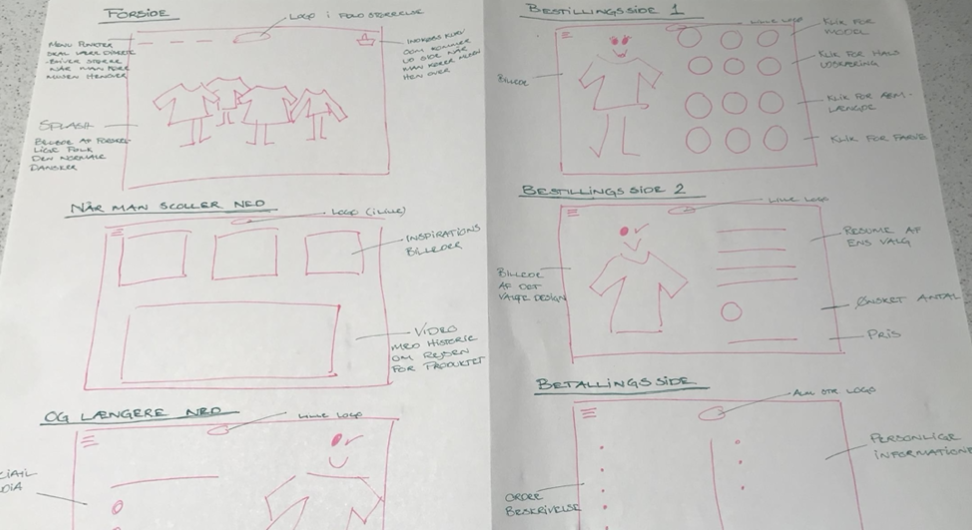 FORSIDE
LOGO I FULD STØRRELSE
MENU PUNKTER
SKAL VÆRE DISKRETE
BLIVER STØRRE
NÅR MAN FØRE
MUSEN HENOVER
INDKØBS KURV
SOM KOMMER
UD SIDE NÅR
MAN KØRER MUSEN
HEN OVER
SPLASH
BILLEDE AF FORSKEL-
LIGE FOLK
DEN NORMALE
DANSKER
NÅR MAN SCOLLER NED
LOGO (ILILLE)
INSPIRATIONS
BILLEDER
VIDEO
MED HISTORIE
OM REJSEN
FOR PRODUKTET
OG LÆNGERE NED
LILLE LOGO
BESTILLINGSSIDE 1
LILLE LOGO
BILLEDE
KLIK FOR
MODEL
KLIK FOR HALS
UDSKÆRING
KLIK FOR ARM-
LÆNGDE
KLIK FOR FARVE
BESTILLINGS SIDE 2
LILLE LOGO
BILLEDE
AF DET
VALGTE DESIGN
RESUME AF
ENS VALG
ØNSKET ANTAL
PRIS
BETALLINGSSIDE
ALM STR. LOGO
PERSONLIGE
INFORMATIONE
ORDER
BESKRIVELSE